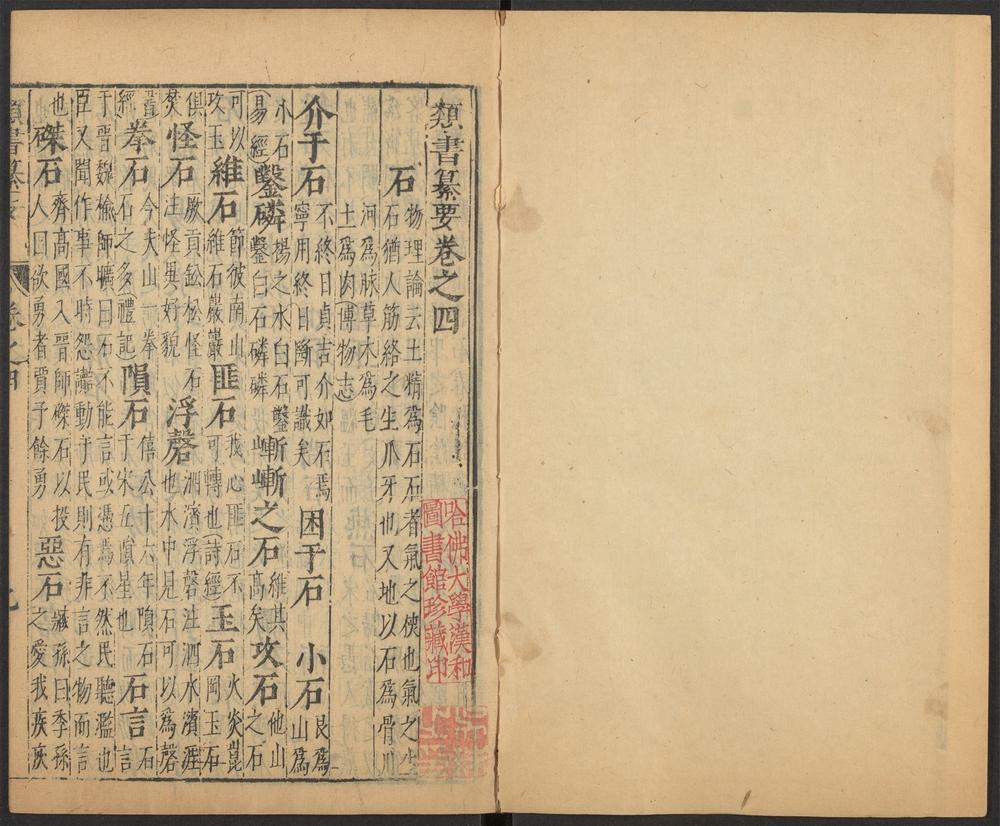 類書纂要卷之四
哈佛大學漢和
圖書館珍藏印
石 物理論云土精爲石石者氣之使也氣之生石猶人筋絡之生爪牙也又地以石爲骨川
河爲脉草木爲毛土爲肉(博物志)
介于石 不終日貞吉介如石焉寧用終日斷可識矣 困于石 小石 艮爲山爲
小石(易經) 鑿磷 揚之水白石鑿鑿白石磷磷 嶄嶄之石 維其高矣 攻石 他山之石
可以攻玉 維石 節彼南山維石巖巖 匪石 我心匪石不可轉也(詩經) 玉石 火炎崑岡玉石
俱焚 怪石 厥貢鉛松怪石注怪異好貌 浮磬 泗濱浮磬注泗水濱涯也水中見石可以爲磬
書經 拳石 今夫山一拳石之多(禮記) 隕石 僖公十六年隕石于宋五隕星也 石言 石言
于晉魏榆師曠曰石不能言或憑焉不然民聽濫也臣又聞作事不時怨讟動于民則有非言之物而言
也 磔石 齊高國入晉師磔石以投人曰欲勇者賈予餘勇 惡石 臧孫曰季孫之愛我疾疢
類書纂要
卷之四